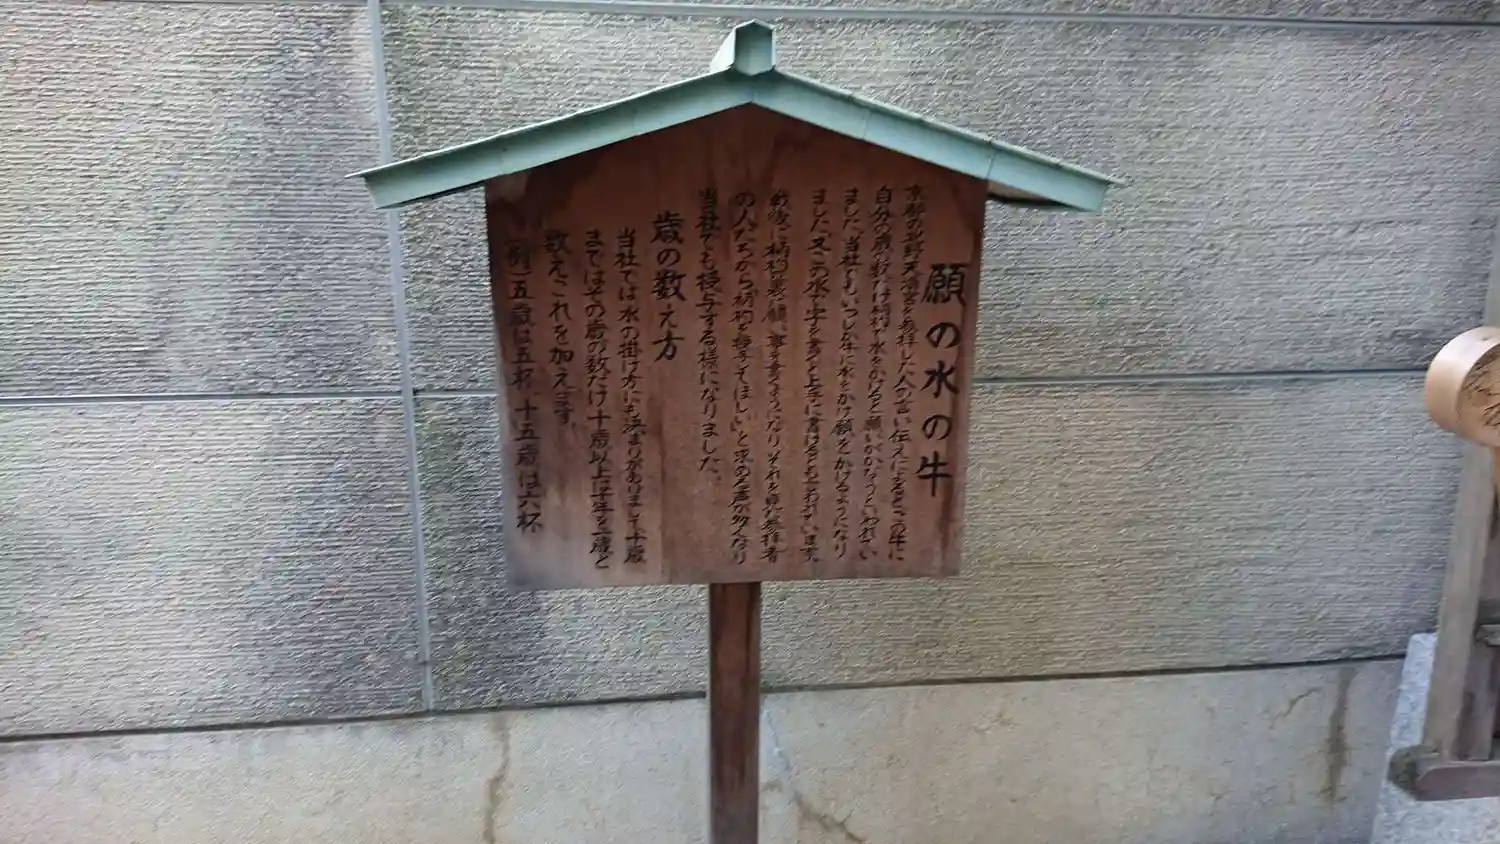 願の水の牛
京都の北野天満宮を参拝した人の言い伝えによるとこの牛に
自分の歳の数だけ柄杓で水をかけると願いがかなうといわれてい
ました、当社でもいつしか牛に水をかけ願をかけるようになり
ました、又この水で字を書くと上手に書けるとも言われています。
最後に柄杓の裏に願い事を書くようになりそれを見た参拝者
の人たちから「柄杓を授与してほしい」と求める声が多くなり
当社でも授与する様になりました。
歳の数え方
当社では水の掛け方にも決まりがありまして、十歳
まではその歳の数だけ十歳以上は十年を一歳と
数えこれを加えます。
(例)五歳は五杯、十五歳は六杯